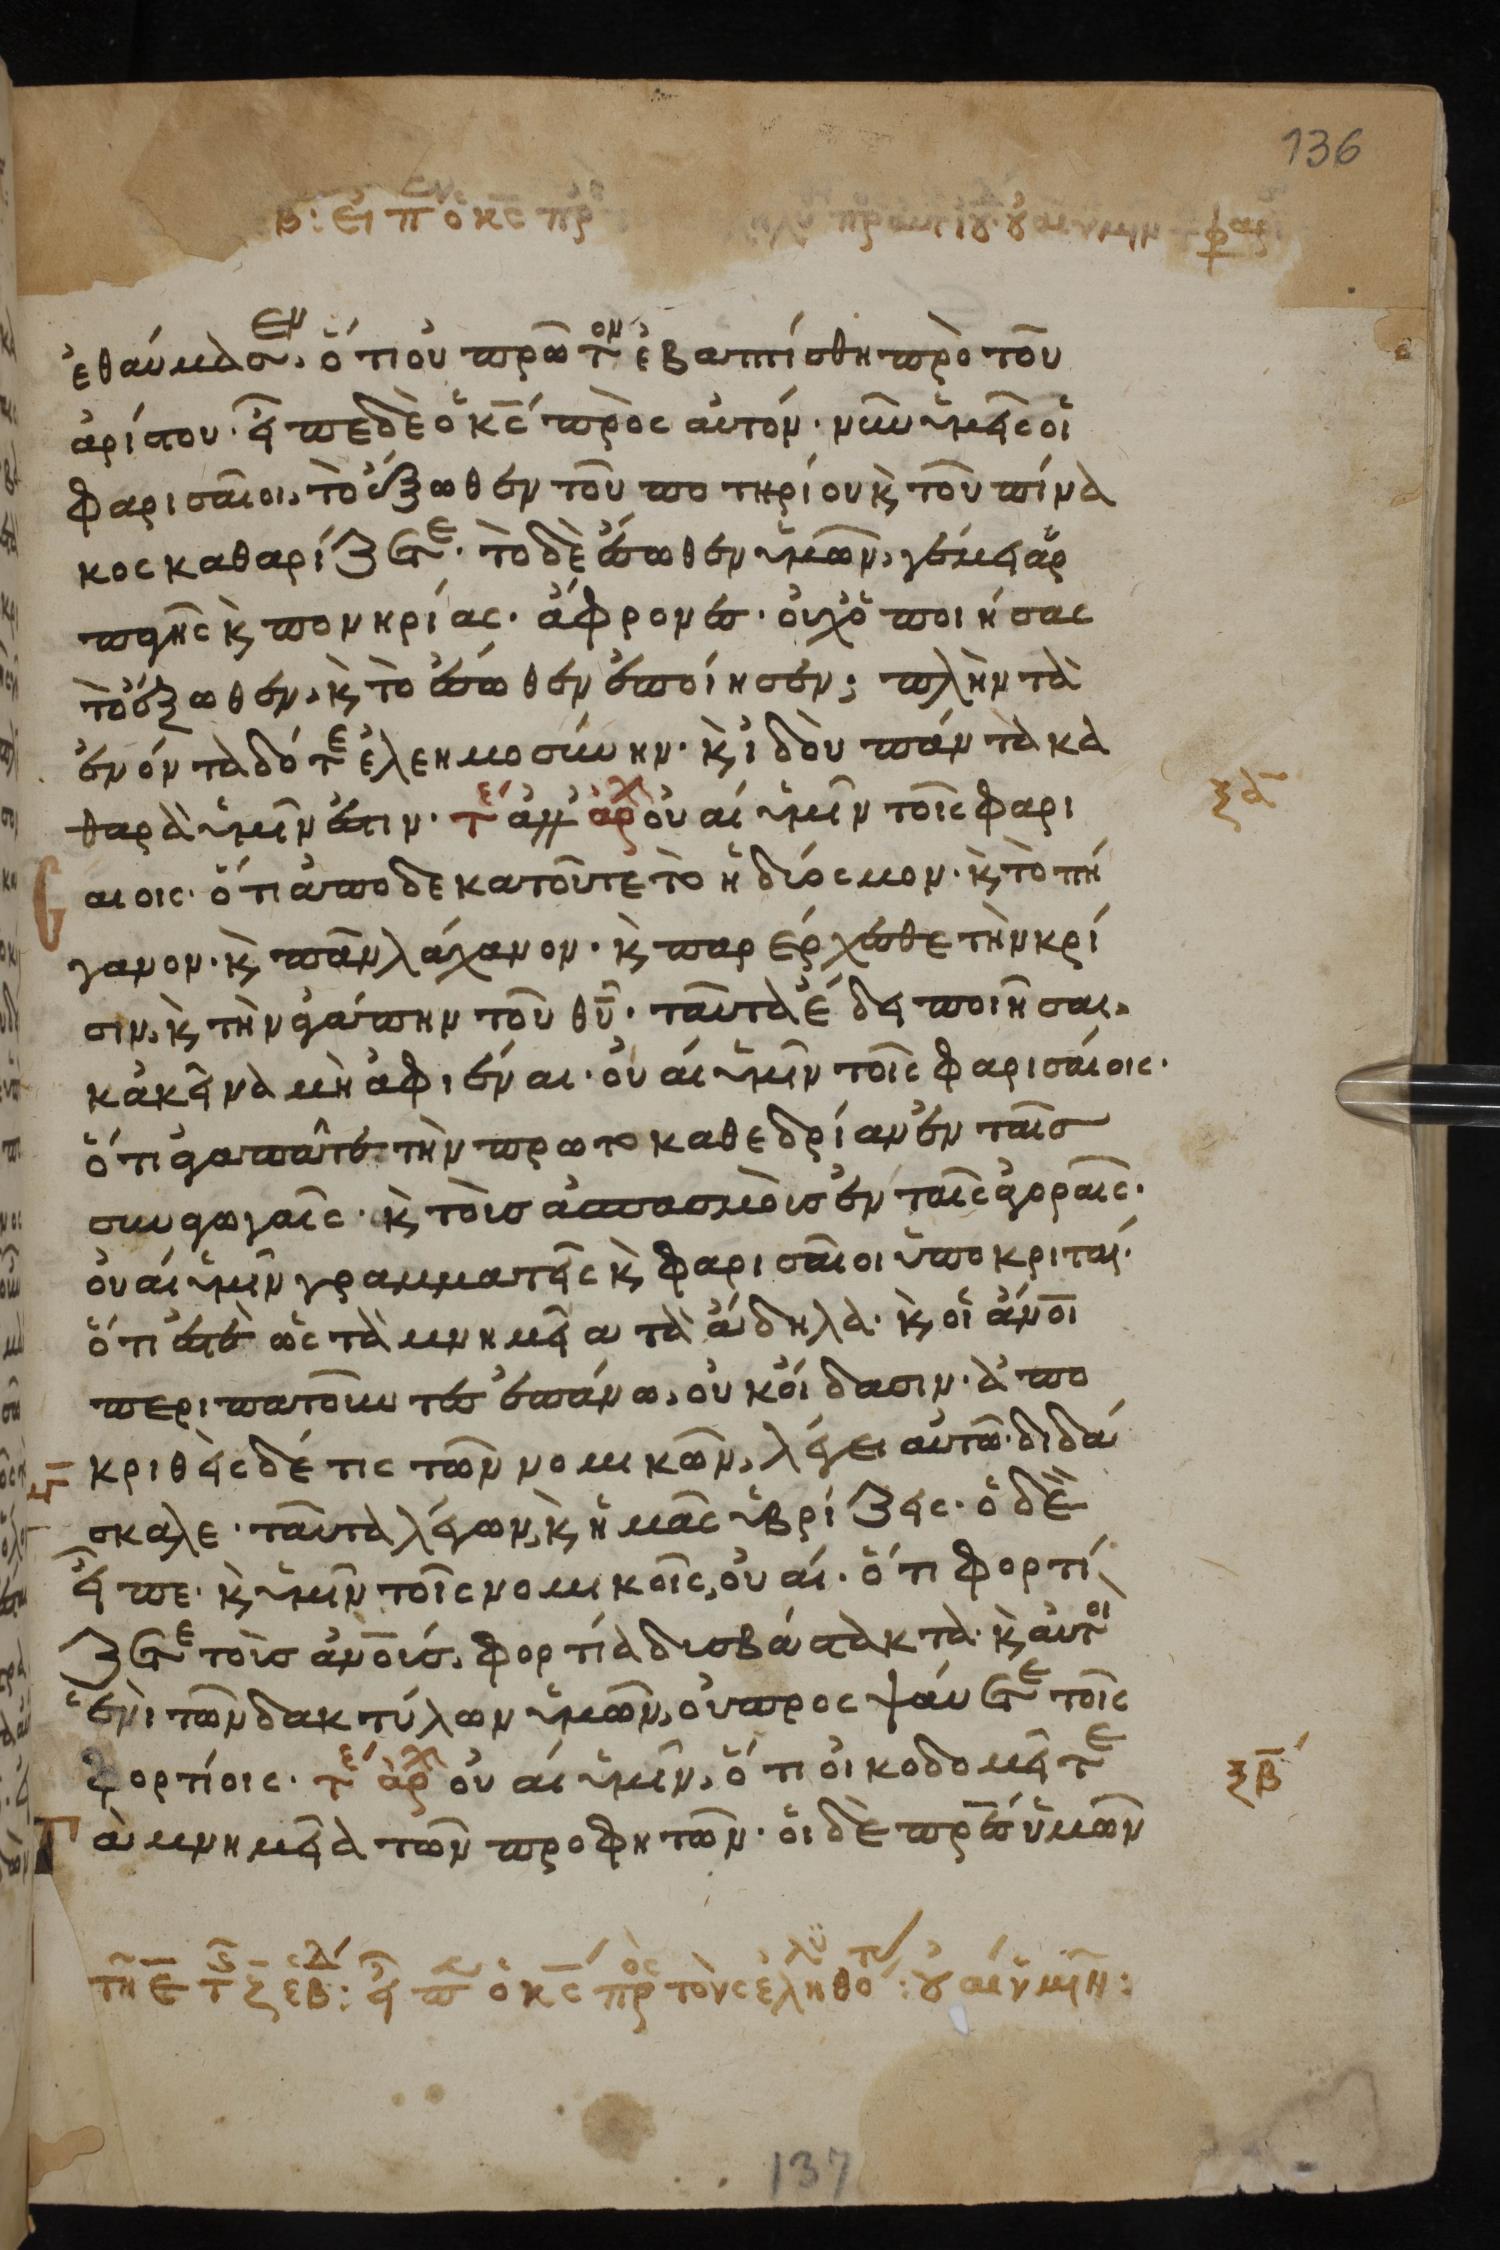 136
Β: ειπ ὁ κς πρ
ἐθαύμασεν, ὅτι οὐ πρῶτον ἐβαπτίσθη πρὸ τοῦ
ἀρίστου· εἶπε δὲ ὁ κς πρὸς αὐτόν· νῦν ὑμεῖς οἱ
φαρισαῖοι, τὸ ἔξωθεν τοῦ ποτηρίου κ τοῦ πίνα
κος καθαρίζετε· τὸ δὲ ἔσωθεν ὑμῶν, γέμει ἁρ
παγῆς κ πονηρίας· ἄφρονες· οὐχ ὁ ποιήσας
τὸ ἔξωθεν, κ τὸ ἔσωθεν ἐποίησεν; πλὴν τὰ
ἐνόντα δότε ἐλεημοσύνην· κ ἰδοὺ πάντα κα
θαρὰ ὑμῖν ἐστιν· τε ἀλλ αρχ οὐαί ὑμῖν τοῖς φαρι
αιοις· ὅτι ἀποδεκατοῦτε τὸ ἡδύοσμον· κ τὸ πή
γανον· κ πᾶν λάχανον· κ παρέρχεσθε τὴν κρί
σιν, κ τὴν ἀγάπην τοῦ θυ· ταῦτα ἔδει ποιῆσαι,
κἀκεῖνα μὴ ἀφιέναι· οὐαί ὑμῖν τοῖς φαρισαίοις·
ὅτι ἀγαπᾶτε τὴν πρωτοκαθεδρίαν ἐν ταῖς
συναγωγαῖς· κ τοὶσ ἀσπασμοὶσ ἐν ταῖς ἀγοραῖς·
οὐαί ὑμῖν γραμματεῖς κ φαρισαῖοι ὑποκριταί·
ὅτι ἐστὲ ὡς τὰ μνημεῖα τὰ ἄδηλα· κ οἱ ἄνοι
περιπατοῦντες ἐπάνω, οὐκ οἴδασιν· ἀπο
κριθεὶς δέ τις τῶν νομικῶν, λέγει αὐτῶ· διδά
σκαλε· ταῦτα λέγων, κ ἡμᾶς ὑβρίζεις· ὁ δὲ
εἶπε· κ ὑμῖν τοῖς νομικοῖς, οὐαί· ὅτι φορτί
ζετε τοὶσ ἀνοισ, φορτία δισβάστακτα· κ αὐτοὶ
ἑνὶ τῶν δακτύλων ὑμῶν, οὐ προσψαύετε τοῖς
φορτίοις· τε αρχ οὐαί ὑμῖν, ὅτι οἰκοδομεῖτε
Τὰ μνημεῖα τῶν προφητῶν· οἱ δὲ πρες ὑμῶν
ξα
ξβ
τῆ ε τ ς εβδ: εἶπ ὁ κς πρὸς τοὺς ἐληλυθό: οὐαί ὑμῖν:
137